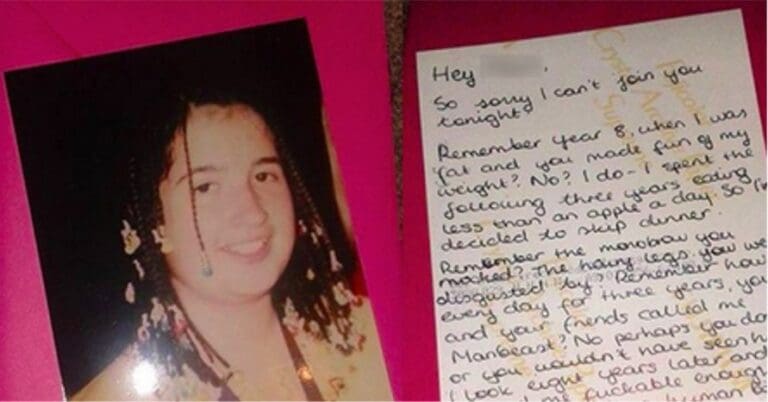 Hey ,
So sorry I can't join you
tonight.
Remember year 8, when I was
fat and you made fun of my
weight? No? I do - I spent the
following three years eating
less than an apple a day. So I'm
decided to skip dinner.
Remember the monobrow you
mocked? The hairy legs you we
disgusted by? Remember how
every day for three years, you
and your friends called me
Manbeast? No perhaps you do
or you wouldn't have seen h
I look eight years later and
me fuckable enough
human